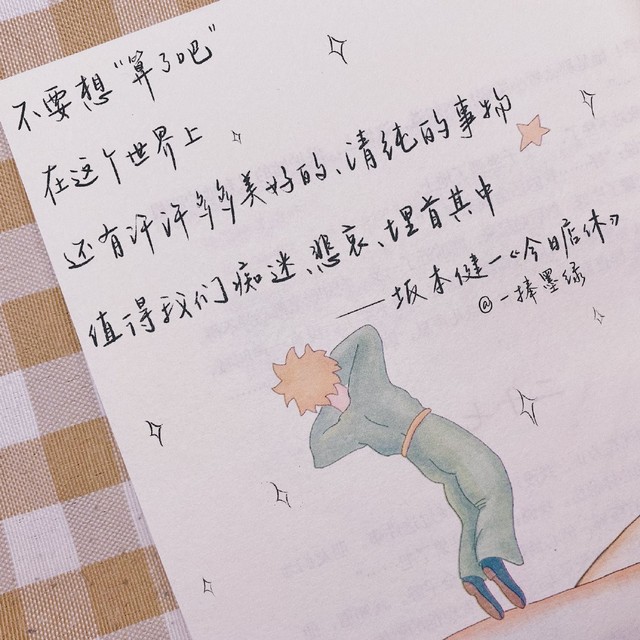 不要想“算了吧”
在这个世界上
还有许许多多美好的、清纯的事物
值得我们痴迷、悲哀、埋首其中
——坂本健一《今日店休》
@一捧墨绿
二十七